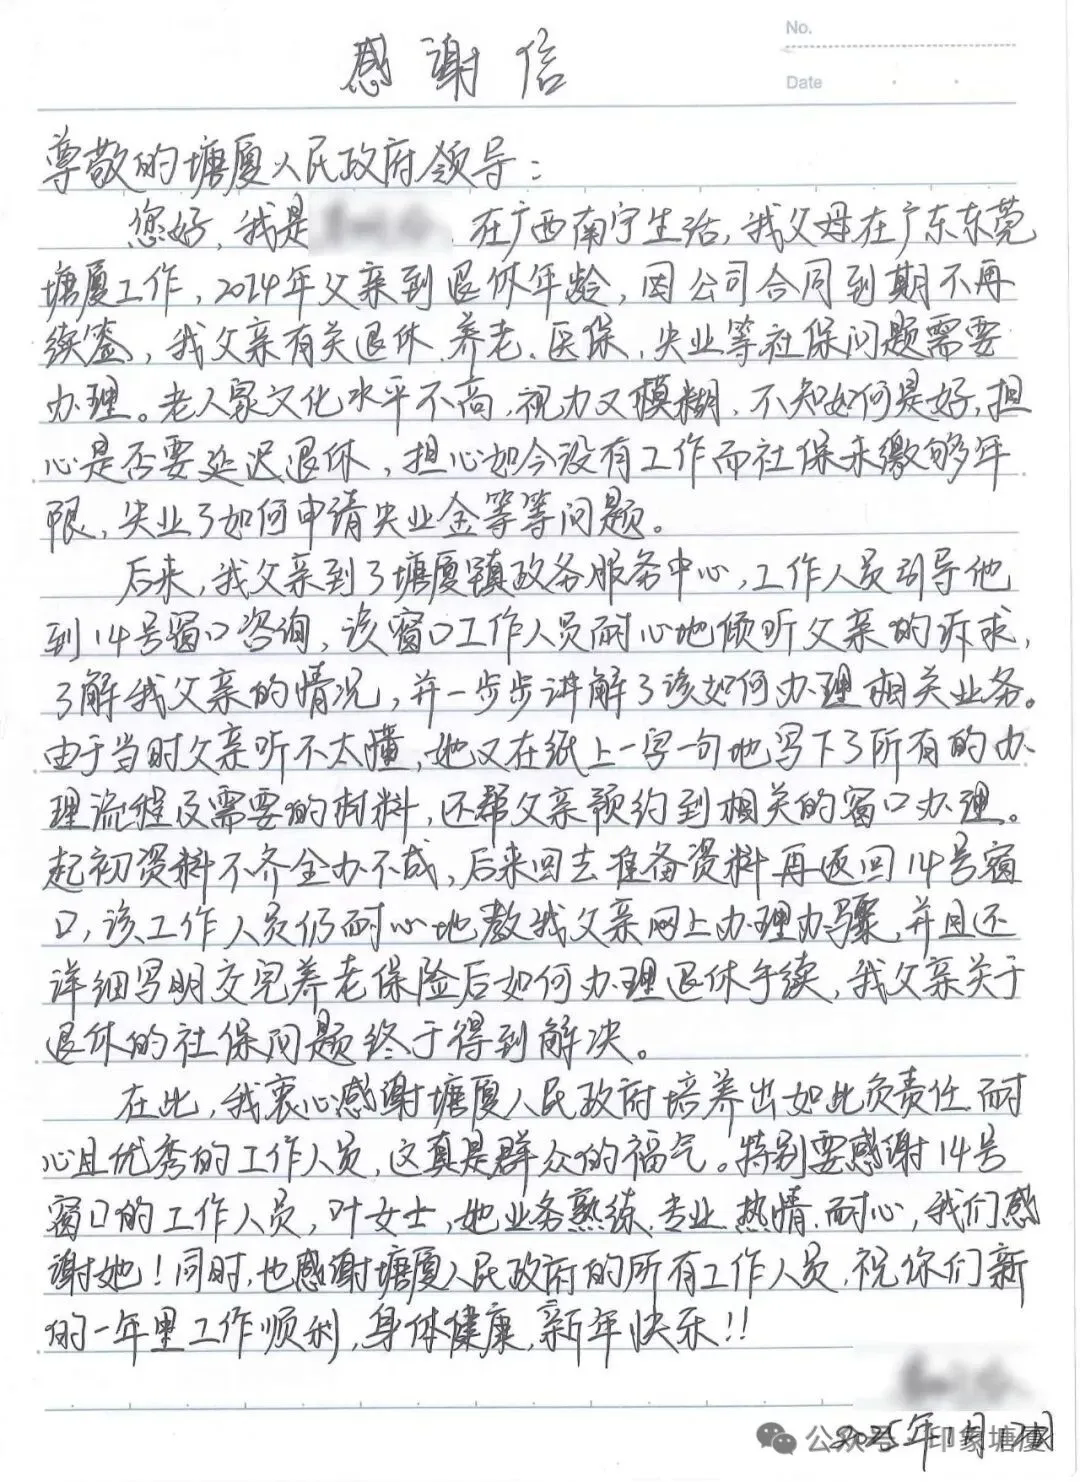 No.
感谢信
Date
尊敬的塘厦人民政府领导：
您好，我是 在广西南宁生活，我父母在广东东莞
塘厦工作，2024年父亲到退休年龄，因公司合同到期不再
续签，我父亲有关退休、养老、医保、失业等社保问题需要
办理。老人家文化水平不高，视力又模糊，不知如何是好，担
心是否要延迟退休，担心如今没有工作而社保未缴够年
限，失业了如何申请失业金等等问题。
后来，我父亲到了塘厦镇政务服务中心，工作人员引导他
到14号窗口咨询，该窗口工作人员耐心地倾听父亲的诉求，
了解我父亲的情况，并一步步讲解了该如何办理相关业务。
由于当时父亲听不太懂，她又在纸上一字一句地写下了所有的办
理流程及需要的材料，还帮父亲预约到相关的窗口办理。
起初资料不齐全办不成，后来回去准备资料再返回14号窗
口，该工作人员仍耐心地教我父亲网上办理办骤，并且还
详细写明交完养老保险后如何办理退休手续，我父亲关于
退休的社保问题终于得到解决。
在此，我衷心感谢塘厦人民政府培养出如此负责任、耐
心且优秀的工作人员，这真是群众的福气。特别要感谢14号
窗口的工作人员，叶女士，她业务熟练、专业、热情、耐心，我们感
谢她！同时，也感谢塘厦人民政府的所有工作人员，祝你们新
的一年里工作顺利，身体健康，新年快乐！！
2025年1月
公众号·印象塘厦